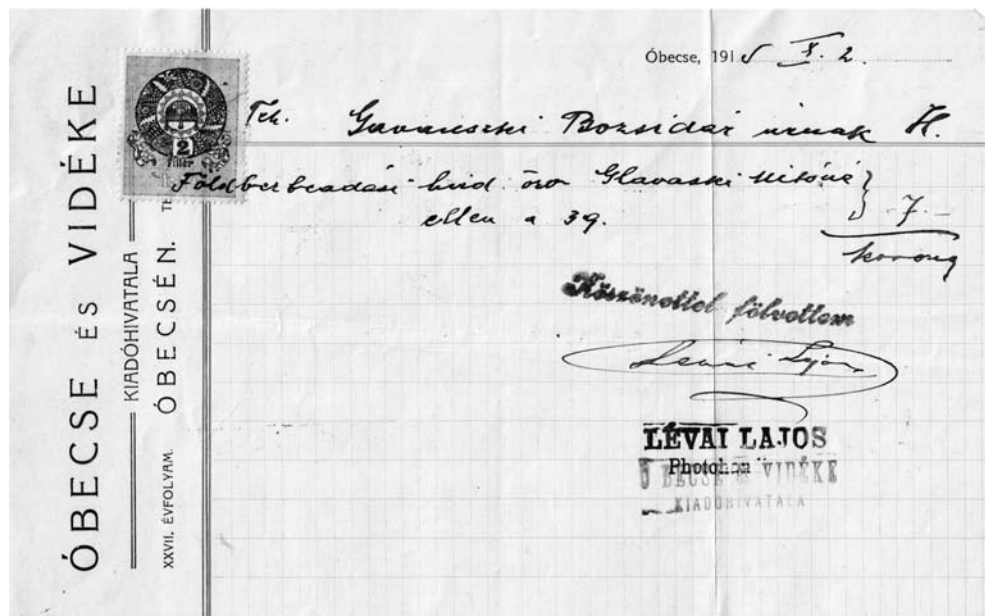 ÓBECSE ÉS VIDÉKE
KIADÓHIVATALA
ÓBECSÉN.
XXVII. ÉVFOLYAM.
2
fillér
Óbecse, 1915 X. 2.
Tek. Gavanszki Bozsidár urnak H.
Földbérbeadási hird
ellen a 39. 7.—
korona
Köszönettel fölvettem
Lévai Lajos
LÉVAI LAJOS
Ó BECSE és VIDÉKE
KIADÓHIVATALA